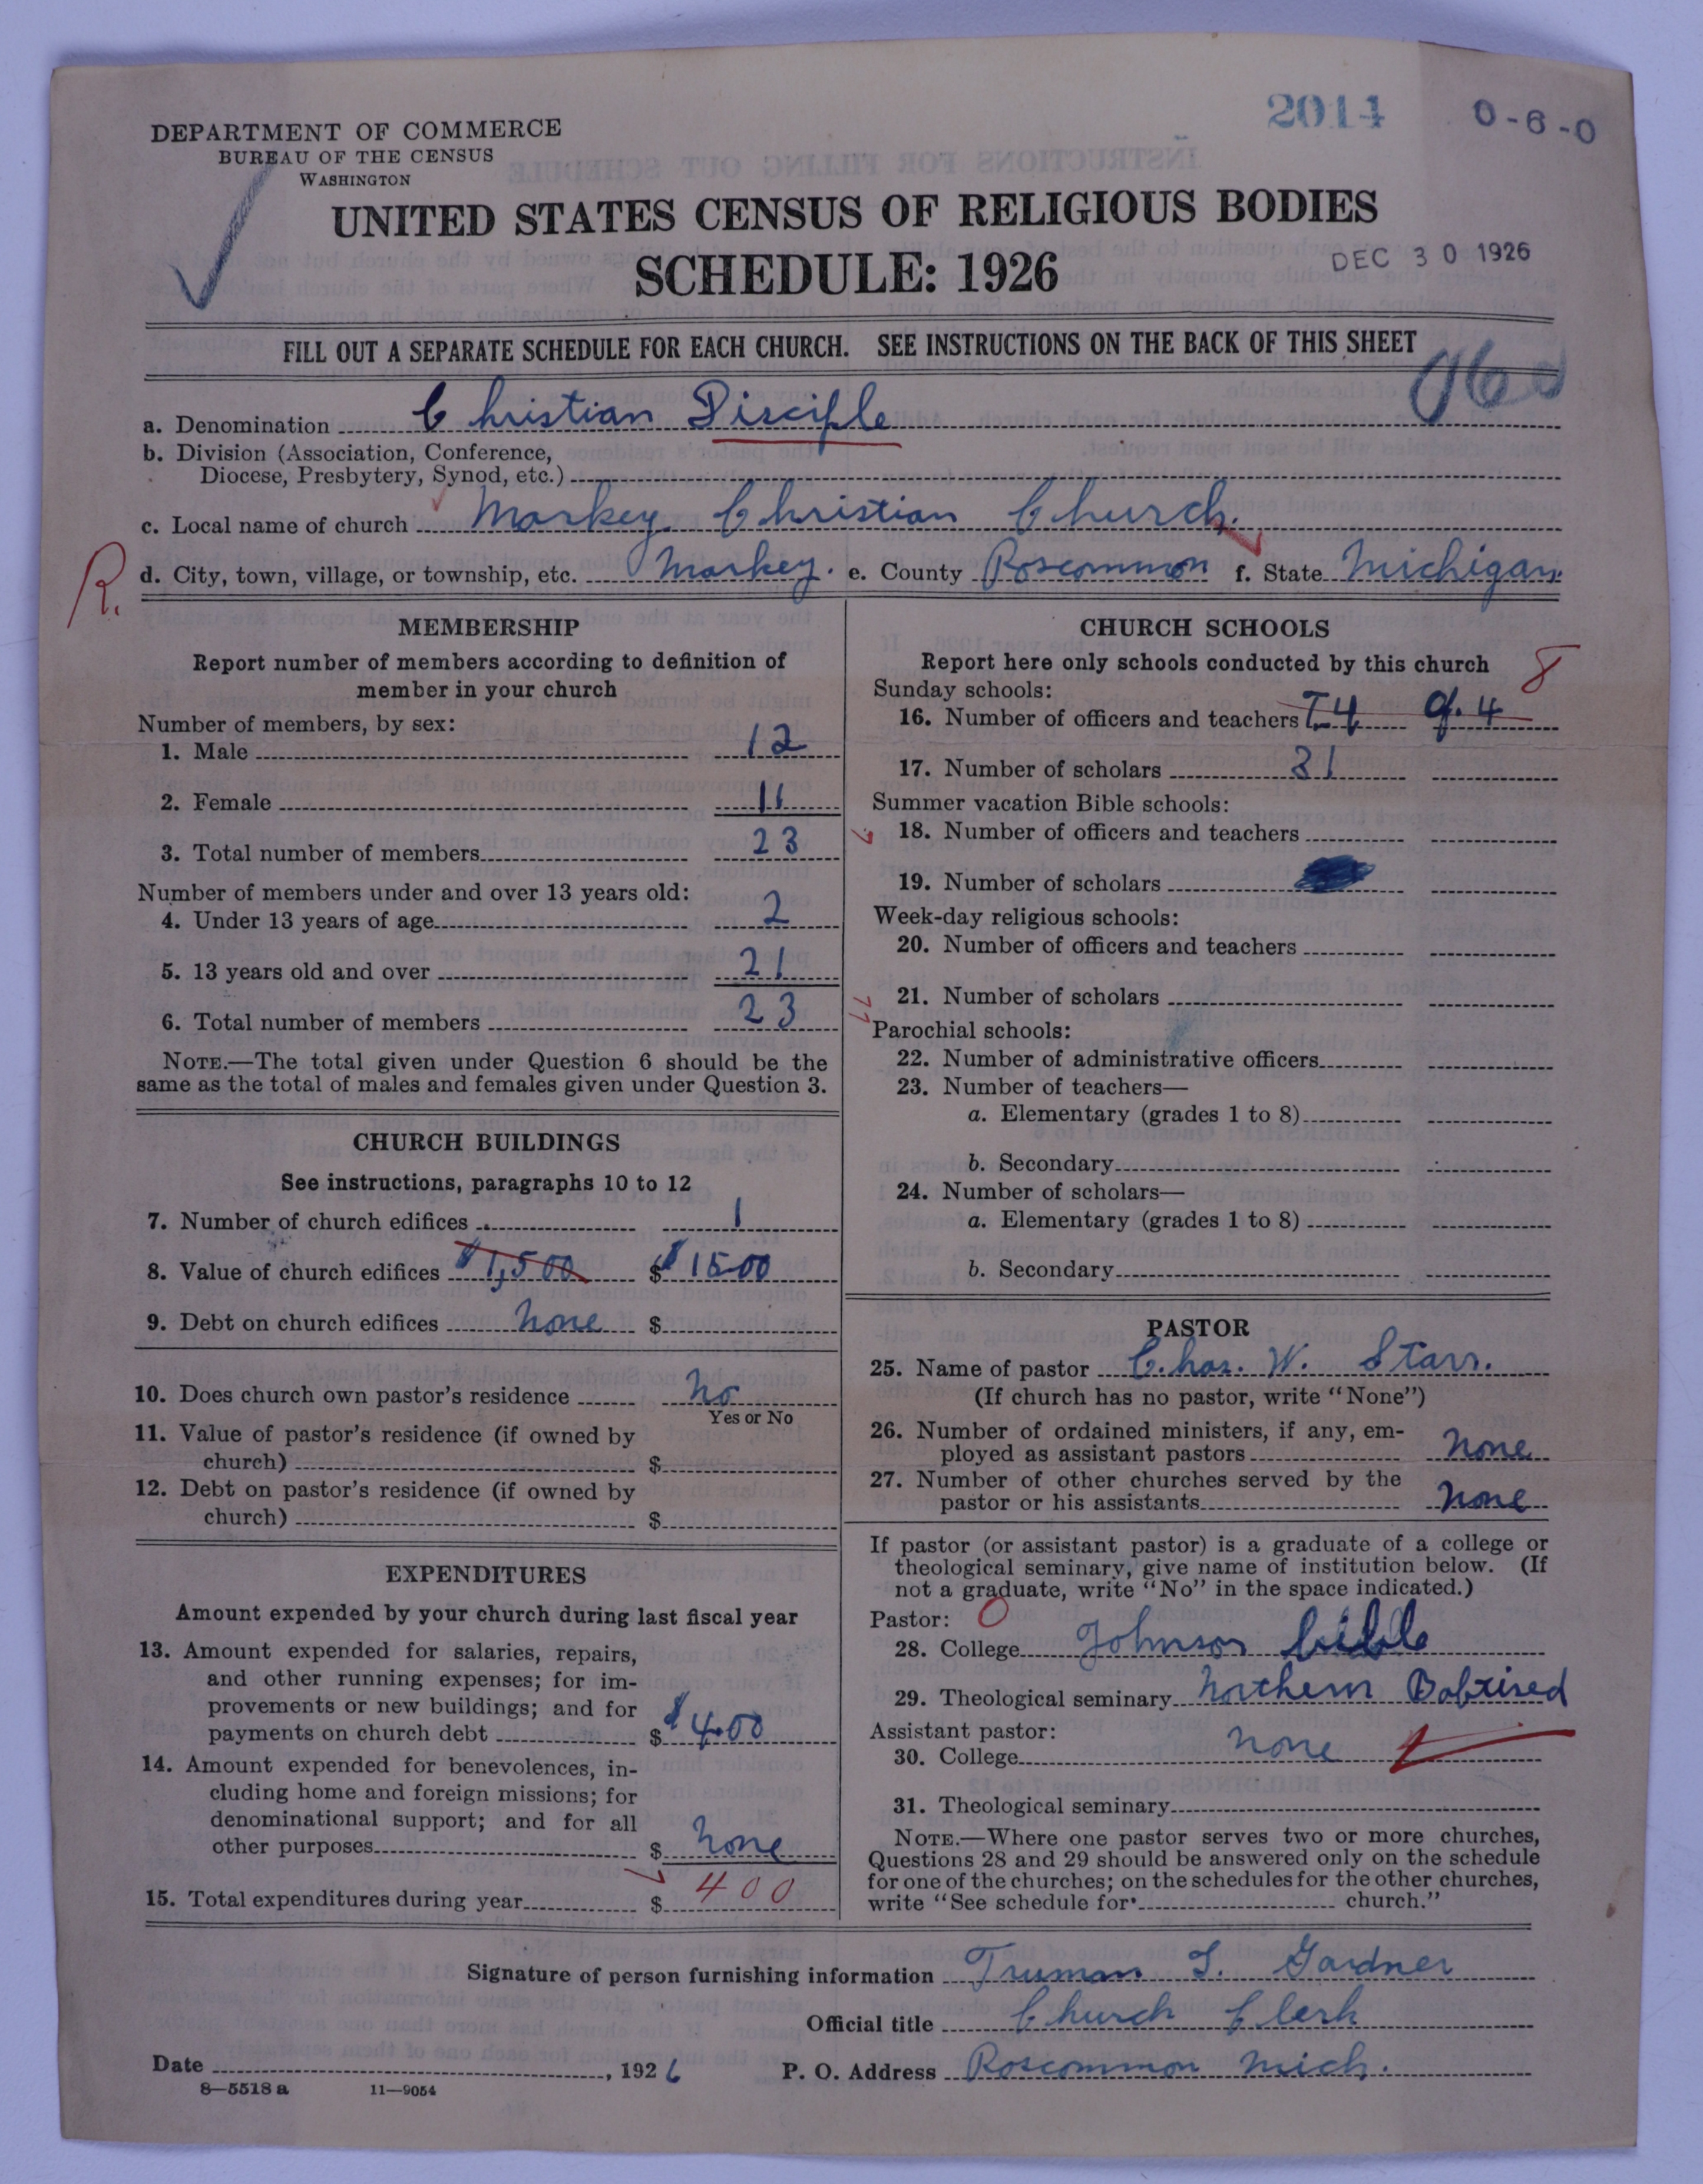 2014
0-6-0
DEPARTMENT OF COMMERCE
BUREAU OF THE CENSUS
WASHINGTON
UNITED STATES CENSUS OF RELIGIOUS BODIES
SCHEDULE: 1926
DEC 30 1926
FILL OUT A SEPARATE SCHEDULE FOR EACH CHURCH. SEE INSTRUCTIONS ON THE BACK OF THIS SHEET
a. Denomination Christian Disciple
b. Division (Association, Conference,
Diocese, Presbytery, Synod, etc.)
c. Local name of church Markey Christian Church.
R. d. City, town, village, or township, etc. Markey. e. County Roscommon f. State Michigan.
MEMBERSHIP
Report number of members according to definition of
member in your church
Number of members, by sex:
1. Male 12
2. Female 11
3. Total number of members 23
Number of members under and over 13 years old:
4. Under 13 years of age 2
5. 13 years old and over 21
6. Total number of members 23
NOTE.—The total given under Question 6 should be the
same as the total of males and females given under Question 3.
CHURCH BUILDINGS
See instructions, paragraphs 10 to 12
7. Number of church edifices 1
8. Value of church edifices $1,500 $ $1500
9. Debt on church edifices None $
10. Does church own pastor's residence No
Yes or No
11. Value of pastor's residence (if owned by
church) $
12. Debt on pastor's residence (if owned by
church) $
EXPENDITURES
Amount expended by your church during last fiscal year
13. Amount expended for salaries, repairs,
and other running expenses; for im-
provements or new buildings; and for
payments on church debt $ $400
14. Amount expended for benevolences, in-
cluding home and foreign missions; for
denominational support; and for all
other purposes $ None
15. Total expenditures during year $ 400
CHURCH SCHOOLS
Report here only schools conducted by this church
8
Sunday schools:
16. Number of officers and teachers T-4 O. 4
17. Number of scholars 31
Summer vacation Bible schools:
18. Number of officers and teachers
19. Number of scholars
Week-day religious schools:
20. Number of officers and teachers
21. Number of scholars
Parochial schools:
22. Number of administrative officers
23. Number of teachers—
a. Elementary (grades 1 to 8)
b. Secondary
24. Number of scholars—
a. Elementary (grades 1 to 8)
b. Secondary
PASTOR
25. Name of pastor Chas. W. Starr.
(If church has no pastor, write "None")
26. Number of ordained ministers, if any, em-
ployed as assistant pastors None
27. Number of other churches served by the
pastor or his assistants None
If pastor (or assistant pastor) is a graduate of a college or
theological seminary, give name of institution below. (If
not a graduate, write "No" in the space indicated.)
Pastor: O
28. College Johnson bible
29. Theological seminary Northern Babtised
Assistant pastor:
30. College None
31. Theological seminary
NOTE.—Where one pastor serves two or more churches,
Questions 28 and 29 should be answered only on the schedule
for one of the churches; on the schedules for the other churches,
write "See schedule for church."
Signature of person furnishing information Truman T. Gardner
Official title Church Clerk
Date , 1926 P. O. Address Roscommon Mich.
8—5518 a 11—9054